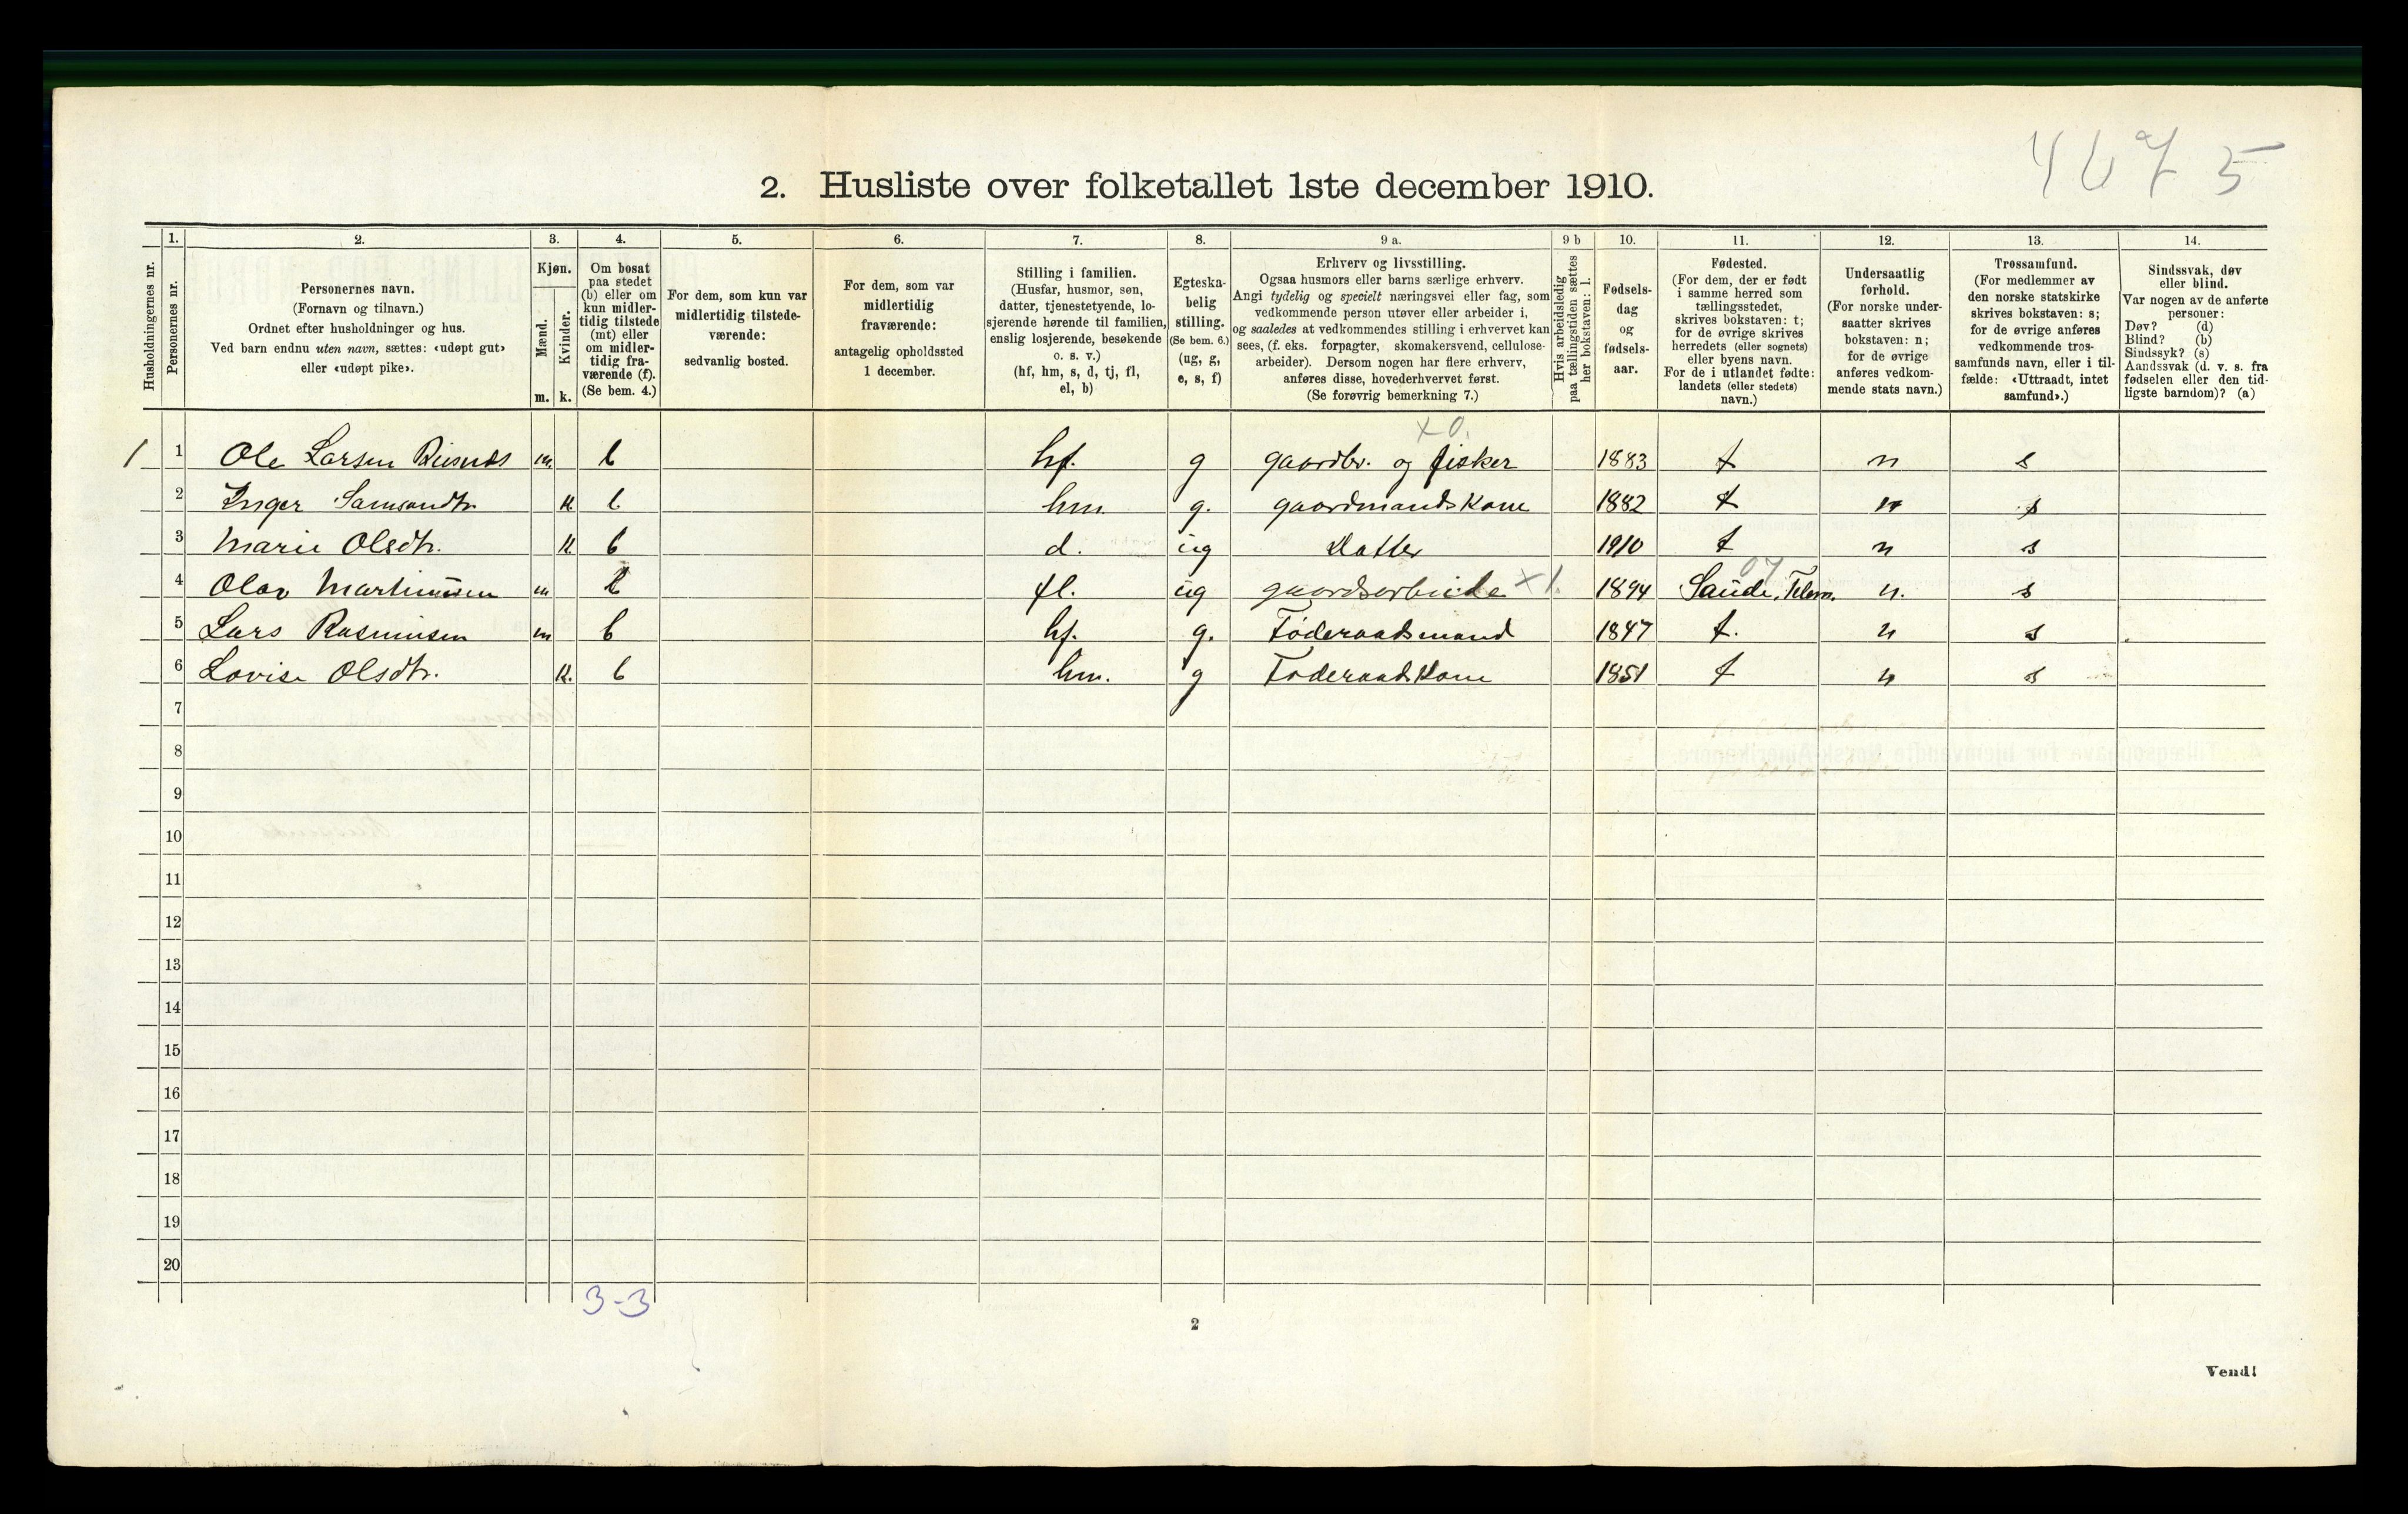 4675
2. Husliste over folketallet 1ste december 1910.
Husholdningernes nr.
1.
Personernes nr.
2.
Personernes navn.
(Fornavn og tilnavn.)
Ordnet efter husholdninger og hus.
Ved barn endnu uten navn, sættes: «udøpt gut»
eller «udøpt pike».
3.
Kjøn.
Mænd.
Kvinder.
m. k.
4.
Om bosat
paa stedet
(b) eller om
kun midler-
tidig tilstede
(mt) eller
om midler-
tidig fra-
værende (f).
(Se bem. 4.)
5.
For dem, som kun var
midlertidig tilstede-
værende:
sedvanlig bosted.
6.
For dem, som var
midlertidig
fraværende:
antagelig opholdssted
1 december.
7.
Stilling i familien.
(Husfar, husmor, søn,
datter, tjenestetyende, lo-
sjerende hørende til familien,
enslig losjerende, besøkende
o. s. v.)
(hf, hm, s, d, tj, fl,
el, b)
8.
Egteska-
belig
stilling.
(Se bem. 6.)
(ug, g,
e, s, f)
9 a.
Erhverv og livsstilling.
Ogsaa husmors eller barns særlige erhverv.
Angi tydelig og specielt næringsvei eller fag, som
vedkommende person utøver eller arbeider i,
og saaledes at vedkommendes stilling i erhvervet kan
sees, (f. eks. forpagter, skomakersvend, cellulose-
arbeider). Dersom nogen har flere erhverv,
anføres disse, hovederhvervet først.
(Se forøvrig bemerkning 7.)
9 b
Hvis arbeidsledig
paa tællingstiden sættes
her bokstaven: l.
10.
Fødsels-
dag
og
fødsels-
aar.
11.
Fødested.
(For dem, der er født
i samme herred som
tællingsstedet,
skrives bokstaven: t;
for de øvrige skrives
herredets (eller sognets)
eller byens navn.
For de i utlandet fødte:
landets (eller stedets)
navn.)
12.
Undersaatlig
forhold.
(For norske under-
saatter skrives
bokstaven: n;
for de øvrige
anføres vedkom-
mende stats navn.)
13.
Trossamfund.
(For medlemmer av
den norske statskirke
skrives bokstaven: s;
for de øvrige anføres
vedkommende tros-
samfunds navn, eller i til-
fælde: «Uttraadt, intet
samfund».)
14.
Sindssvak, døv
eller blind.
Var nogen av de anførte
personer:
Døv? (d)
Blind? (b)
Sindssyk? (s)
Aandssvak (d. v. s. fra
fødselen eller den tid-
ligste barndom)? (a)
x 0.
1 1 Ole Larsen m. b hf. g gaardbr. og fisker 1883 t n s
2 Inger Samsondtr. k b hm. g. gaardmandskone 1882 t n s
3 Marie Olsdtr. k. b d. ug Datter 1910 t n s
07
4 Olav Martinussen m b fl. ug gaardsarbeide x 1. 1894 Saude, Telem. n. s
5 Lars Rasmussen m b hf. g. Føderaadsmand 1847 t. n s
6 Lovise Olsdtr. k. b hm. g Føderaadskone 1851 t n s
7
8
9
10
11
12
13
14
15
16
17
18
19
20
3-3
2
Vend!